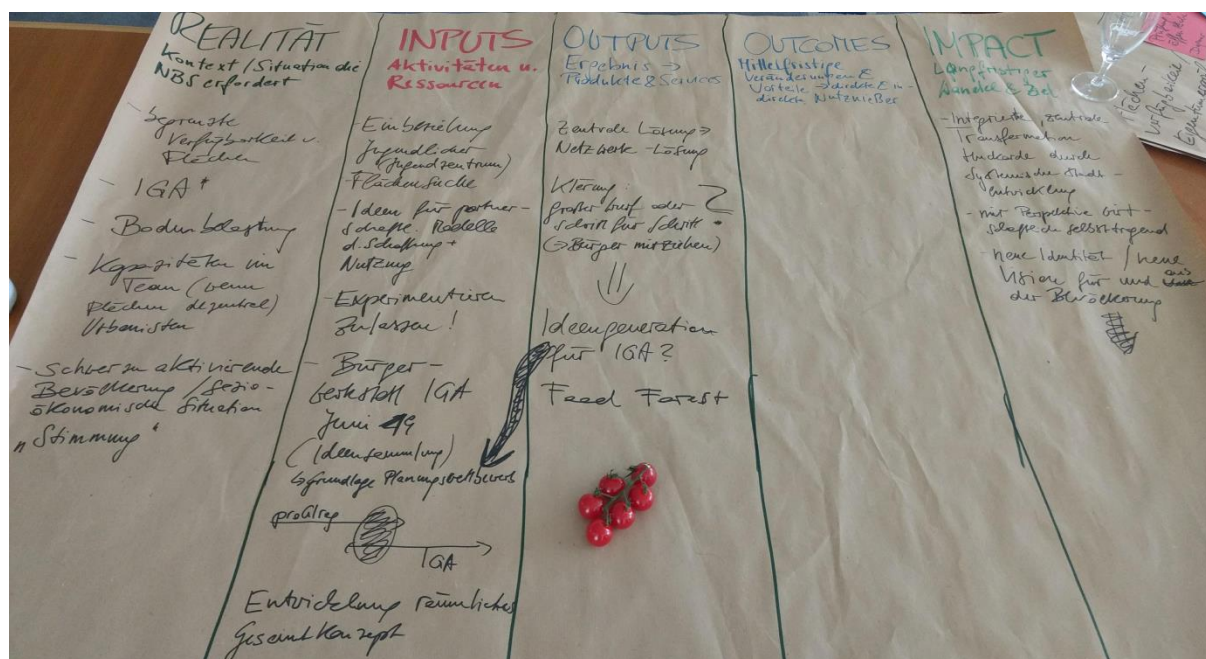 REALITÄT
Kontext/Situation die
NBS erfordert
- begrenzte
Verfügbarkeit v.
Flächen
- IGA
- Bodenbelastung
- Kapazitäten im
Team (wenn
Flächen dezentral)
Urbanisten
- Schwer zu aktivierende
Bevölkerung / sozio-
ökonomische Situation
"Stimmung"
INPUTS
Aktivitäten u.
Ressourcen
- Einbeziehung
Jugendlicher
(Jugendzentrum)
- Flächensuche
- Ideen für partner-
schaftl. Modelle
d. Schaffung +
Nutzung
- Experimentieren
zulassen!
- Bürger-
werkstatt IGA
Juni 19
(Ideensammlung)
↳ Grundlage Planungswettbewerb
proGIreg
IGA
Entwicklung räumliches
Gesamtkonzept
OUTPUTS
Ergebnis →
Produkte & Services
Zentrale Lösung →
Netzwerk-Lösung
Klärung:
großer Wurf oder
Schritt für Schritt ?
(→ Bürger mitziehen)
Ideengeneration
für IGA?
Food Forest
OUTCOMES
Mittelfristige
Veränderungen &
Vorteile → direkte & in-
direkte Nutznießer
IMPACT
Langfristiger
Wandel & Ziel
- Integrierte, zentrale
Transformation
Huckarde durch
systemische Stadt-
entwicklung
- mit Perspektive wirt-
schaftlich selbsttragend
- neue Identität / neue
Vision für und aus
der Bevölkerung
Flächen-
verfügbarkeit